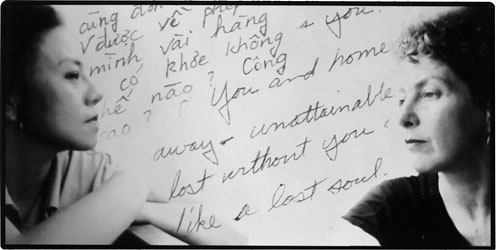 cũng đón
được về phép
mình vài hàng & you.
có khỏe không
thế nào? Công
sao? You and home
away - unattainable,
lost without you,
like a lost soul.